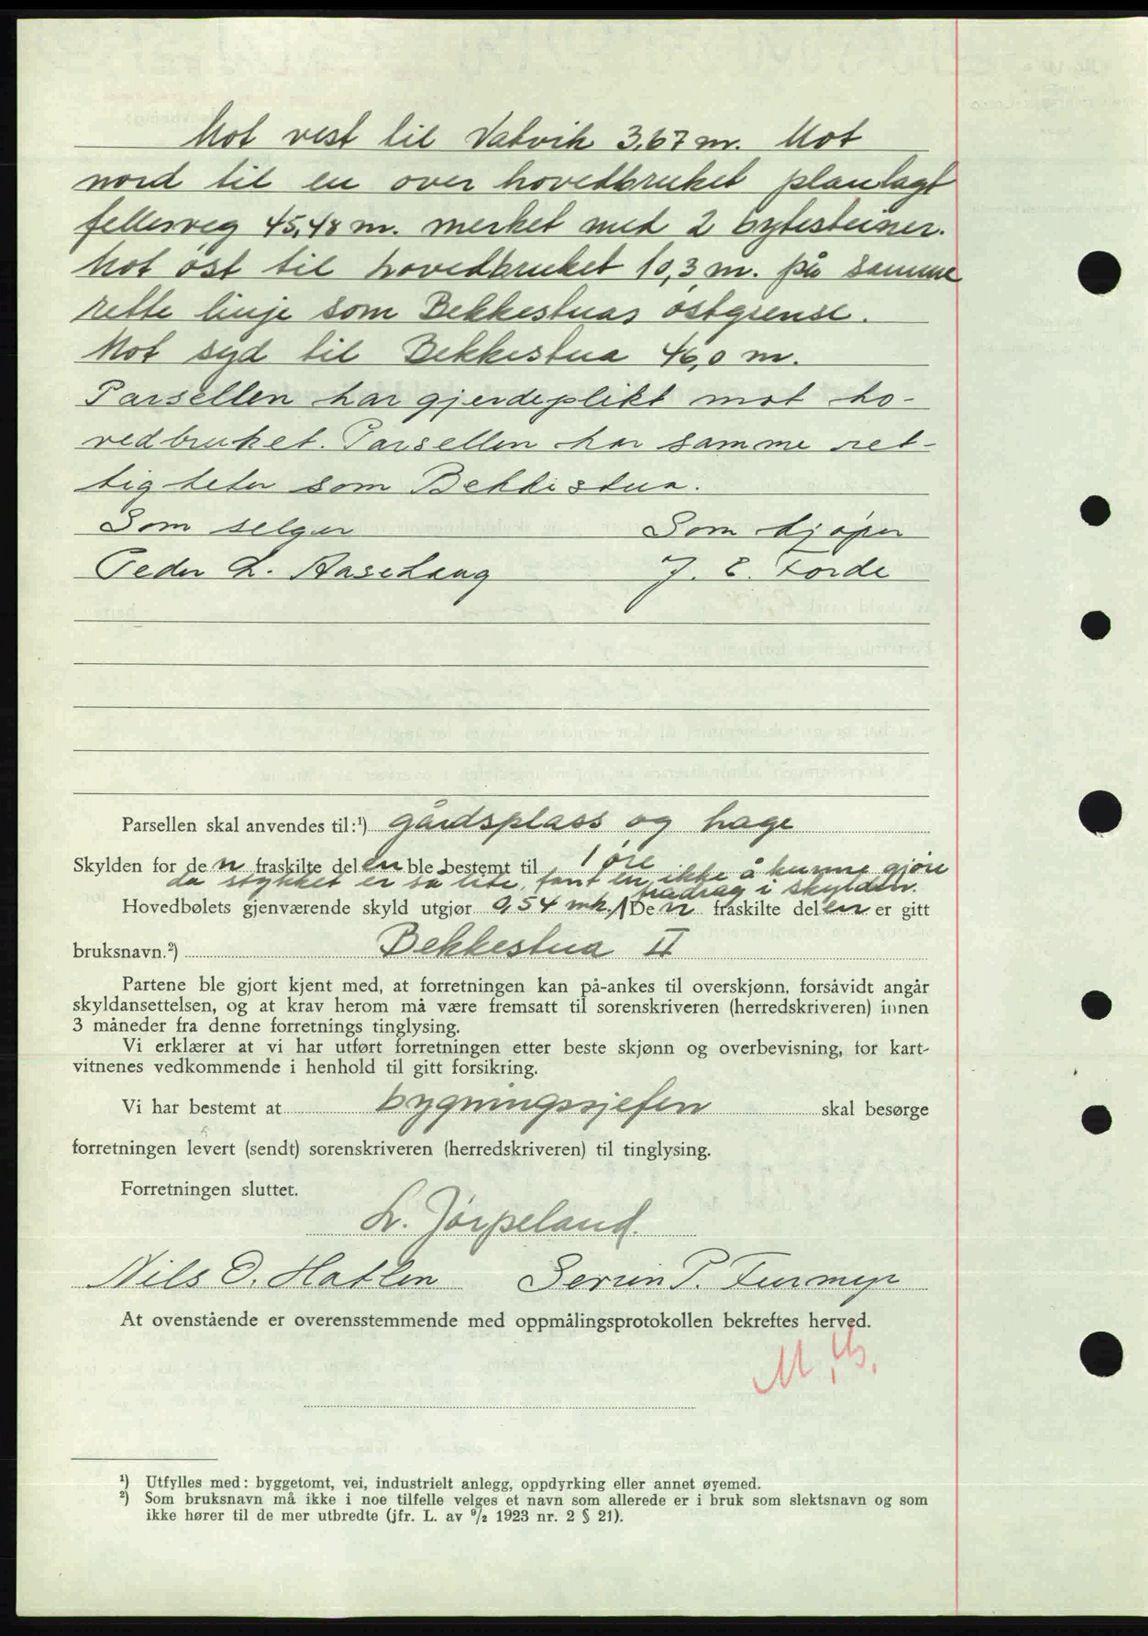 Mot vest til Vatvik 3,67 m. Mot
nord til en over hovedbruket planlagt
fellesveg 45,48 m. merket med 2 bytesteiner.
Mot øst til hovedbruket 10,3 m. på samme
rette linje som Bekkestuas østgrense.
Mot syd til Bekkestua 46,0 m.
Parsellen har gjerdeplikt mot ho-
vedbruket. Parsellen har samme ret-
tigheter som Bekkestua.
Som selger Som kjøper
Peder L. Aasehaug J. E. Førde
Parsellen skal anvendes til:¹) gårdsplass og hage
Skylden for den fraskilte delen ble bestemt til 1 øre
da stykket er så lite, fant en ikke å kunne gjøre
fradrag i skylden.
Hovedbølets gjenværende skyld utgjør 0,54 mk. Den fraskilte delen er gitt
bruksnavn.²) Bekkestua II
Partene ble gjort kjent med, at forretningen kan på-ankes til overskjønn, forsåvidt angår
skyldansettelsen, og at krav herom må være fremsatt til sorenskriveren (herredskriveren) innen
3 måneder fra denne forretnings tinglysing.
Vi erklærer at vi har utført forretningen etter beste skjønn og overbevisning, for kart-
vitnenes vedkommende i henhold til gitt forsikring.
Vi har bestemt at bygningssjefen skal besørge
forretningen levert (sendt) sorenskriveren (herredskriveren) til tinglysing.
Forretningen sluttet.
L. Jørpeland.
Nils O. Hatlen Sevrin P. Furmyr
At ovenstående er overensstemmende med oppmålingsprotokollen bekreftes herved.
¹) Utfylles med: byggetomt, vei, industrielt anlegg, oppdyrking eller annet øyemed.
²) Som bruksnavn må ikke i noe tilfelle velges et navn som allerede er i bruk som slektsnavn og som
ikke hører til de mer utbredte (jfr. L. av ⁹/₂ 1923 nr. 2 § 21).